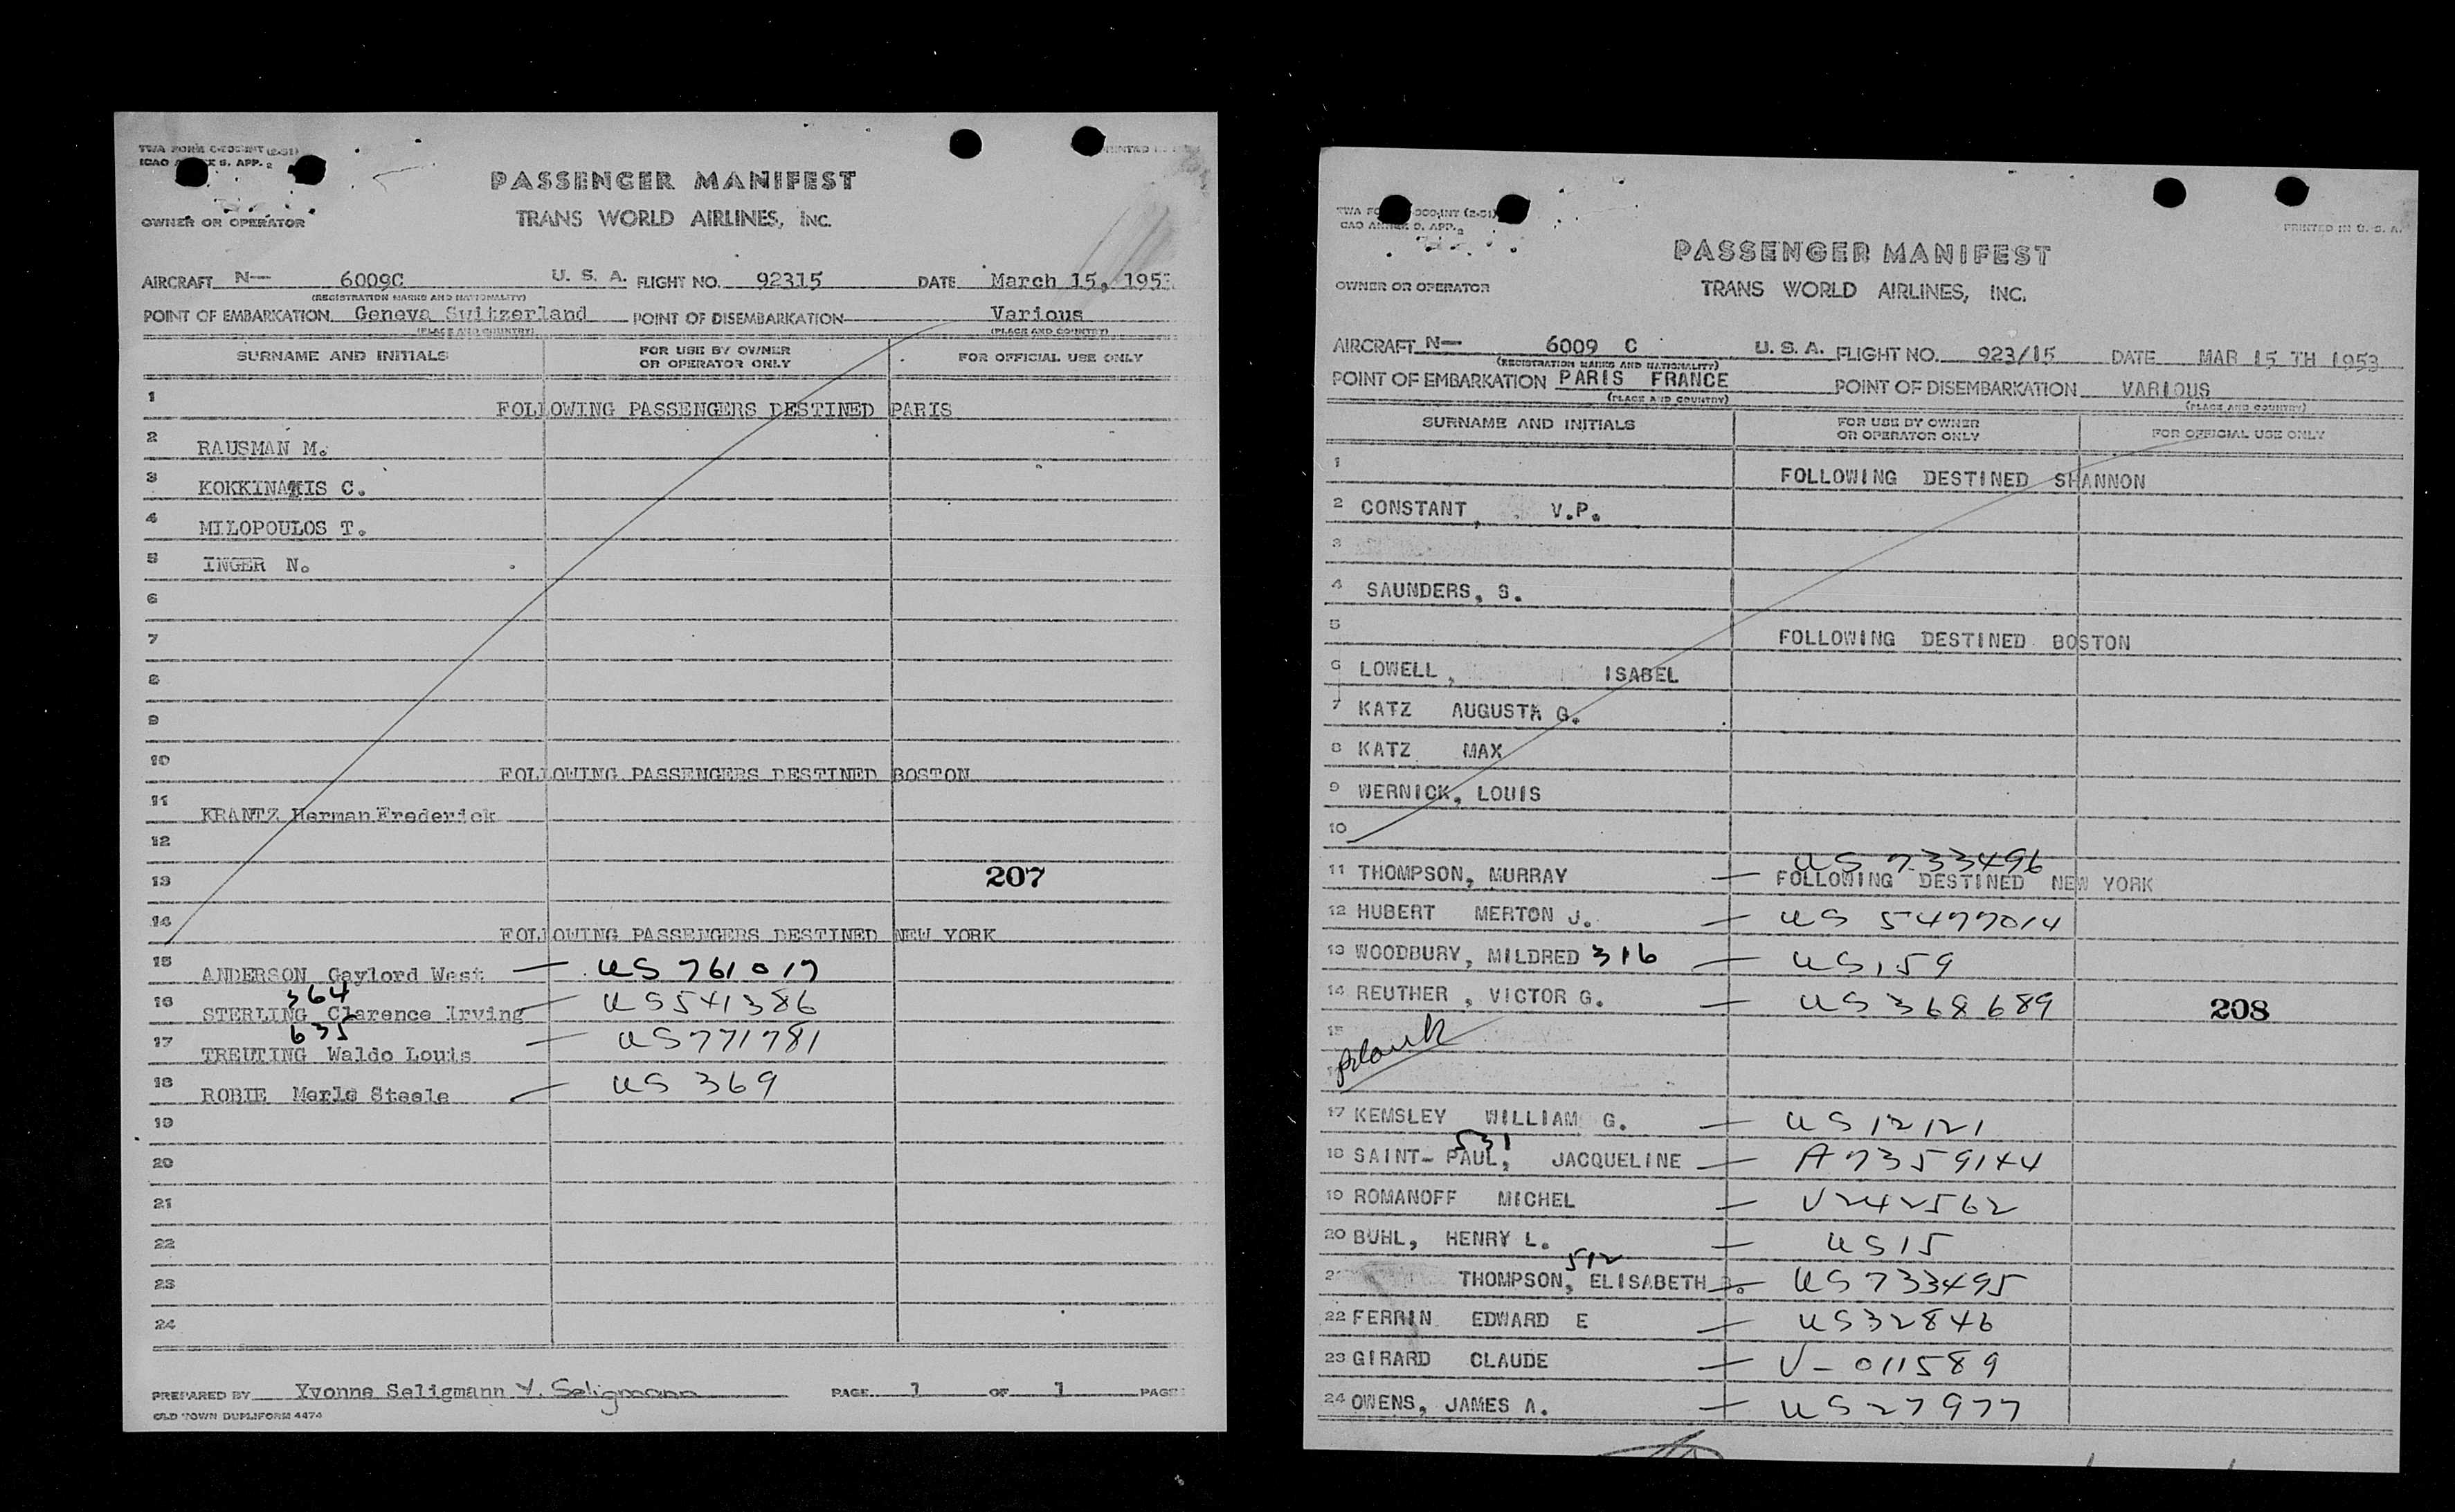 ICAO
S. APP. 2
PASSENGER MANIFEST
OWNER OR OPERATOR
TRANS WORLD AIRLINES, INC.
AIRCRAFT N— 6009C U. S. A. FLIGHT NO. 92315 DATE March 15, 195
(REGISTRATION MARKS AND NATIONALITY)
POINT OF EMBARKATION Geneva Switzerland POINT OF DISEMBARKATION Various
(PLACE AND COUNTRY) (PLACE AND COUNTRY)
SURNAME AND INITIALS FOR USE BY OWNER OR OPERATOR ONLY FOR OFFICIAL USE ONLY
1 FOLLOWING PASSENGERS DESTINED PARIS
2 RAUSMAN M.
3 KOKKINAKIS C.
4 MILOPOULOS T.
5 INGER N.
6
7
8
9
10 FOLLOWING PASSENGERS DESTINED BOSTON
11 KRANTZ Herman Frederick
12
13 207
14 FOLLOWING PASSENGERS DESTINED NEW YORK
15 ANDERSON Gaylord West — US 761017
364
16 STERLING Clarence Irving — US 541386
635
17 TREUTING Waldo Louis — US 771781
18 ROBIE Merle Steele — US 369
19
20
21
22
23
24
PREPARED BY Yvonne Seligmann Y. Seligmann PAGE 1 OF 1 PAGE
OLD TOWN DUPLIFORM 4474
PRINTED IN U. S. A.
PASSENGER MANIFEST
OWNER OR OPERATOR
TRANS WORLD AIRLINES, INC.
AIRCRAFT N— 6009 C U. S. A. FLIGHT NO. 923/15 DATE MAR 15 TH 1953
(REGISTRATION MARKS AND NATIONALITY)
POINT OF EMBARKATION PARIS FRANCE POINT OF DISEMBARKATION VARIOUS
(PLACE AND COUNTRY) (PLACE AND COUNTRY)
SURNAME AND INITIALS FOR USE BY OWNER OR OPERATOR ONLY FOR OFFICIAL USE ONLY
1 FOLLOWING DESTINED SHANNON
2 CONSTANT, V.P.
3
4 SAUNDERS, S.
5 FOLLOWING DESTINED BOSTON
6 LOWELL, ISABEL
7 KATZ AUGUSTA G.
8 KATZ MAX
9 WERNICK, LOUIS
10
US 733496
11 THOMPSON, MURRAY — FOLLOWING DESTINED NEW YORK
12 HUBERT MERTON J. — US 5477014
13 WOODBURY, MILDRED 316 — US 159
14 REUTHER, VICTOR G. — US 368689 208
15
Blank
17 KEMSLEY WILLIAM G. — US 12121
531
18 SAINT-PAUL, JACQUELINE — A7359144
19 ROMANOFF MICHEL — V242562
20 BUHL, HENRY L. — US 15
512
21 THOMPSON, ELISABETH — US 733495
22 FERRIN EDWARD E — US 32846
23 GIRARD CLAUDE — V-011589
24 OWENS, JAMES A. — US 27977